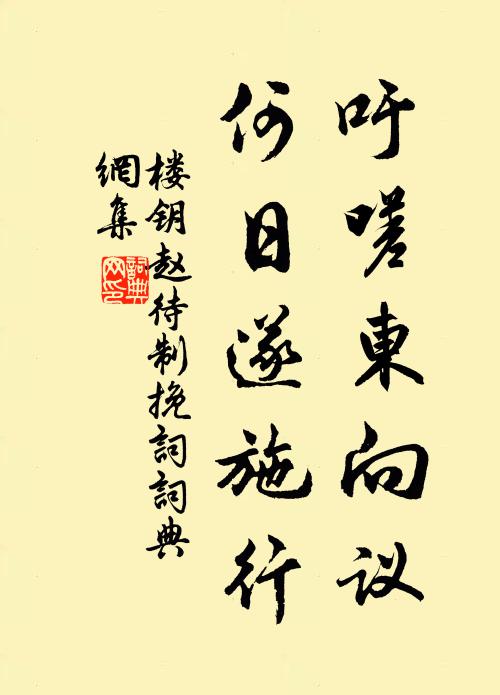 吁嗟東向议
何日遂施行
楼钥赵待制挽詞詞典
網集
詞典
网印